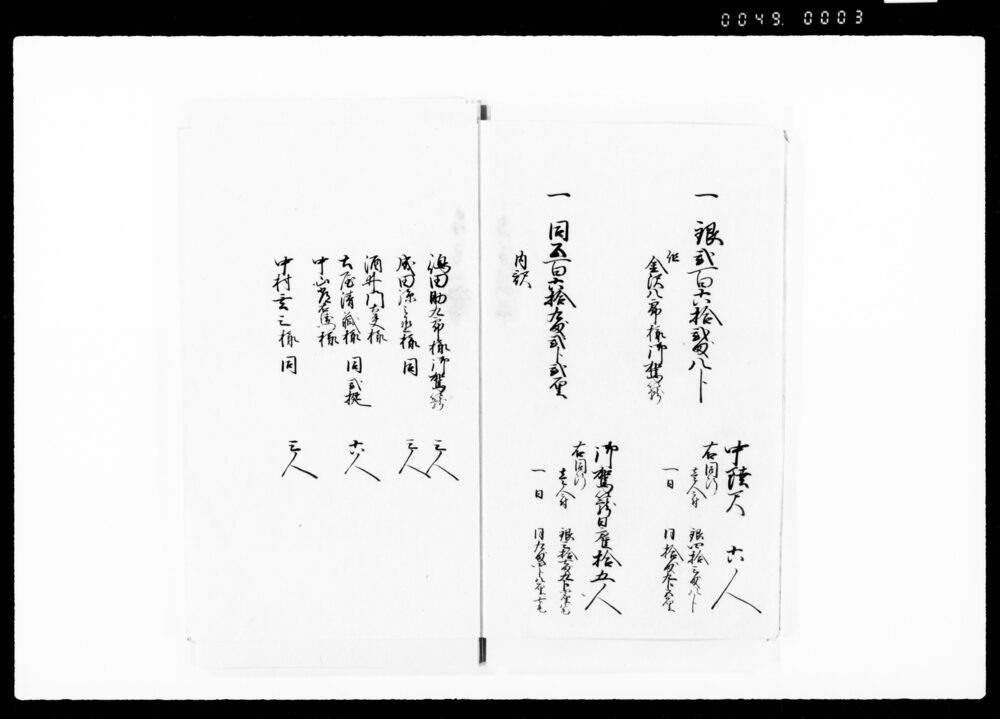 0049. 0003
中陸尺 六人
右同断
壱人ニ付 銀四拾三匁八分
一日 同拾匁九分五厘
一 銀弐百六拾弐匁八分
但
金沢八郎様御駕籠
御駕籠日雇拾五人
右同断
壱人ニ付
一日
一 同五百六拾九匁弐分弐厘
内訳
嶋田助九郎様御駕籠 三人
成田源之丞様 同 三人
酒井門太夫様
大屋清蔵様 同弐挺 六人
中山
中村雲三様 同 三人